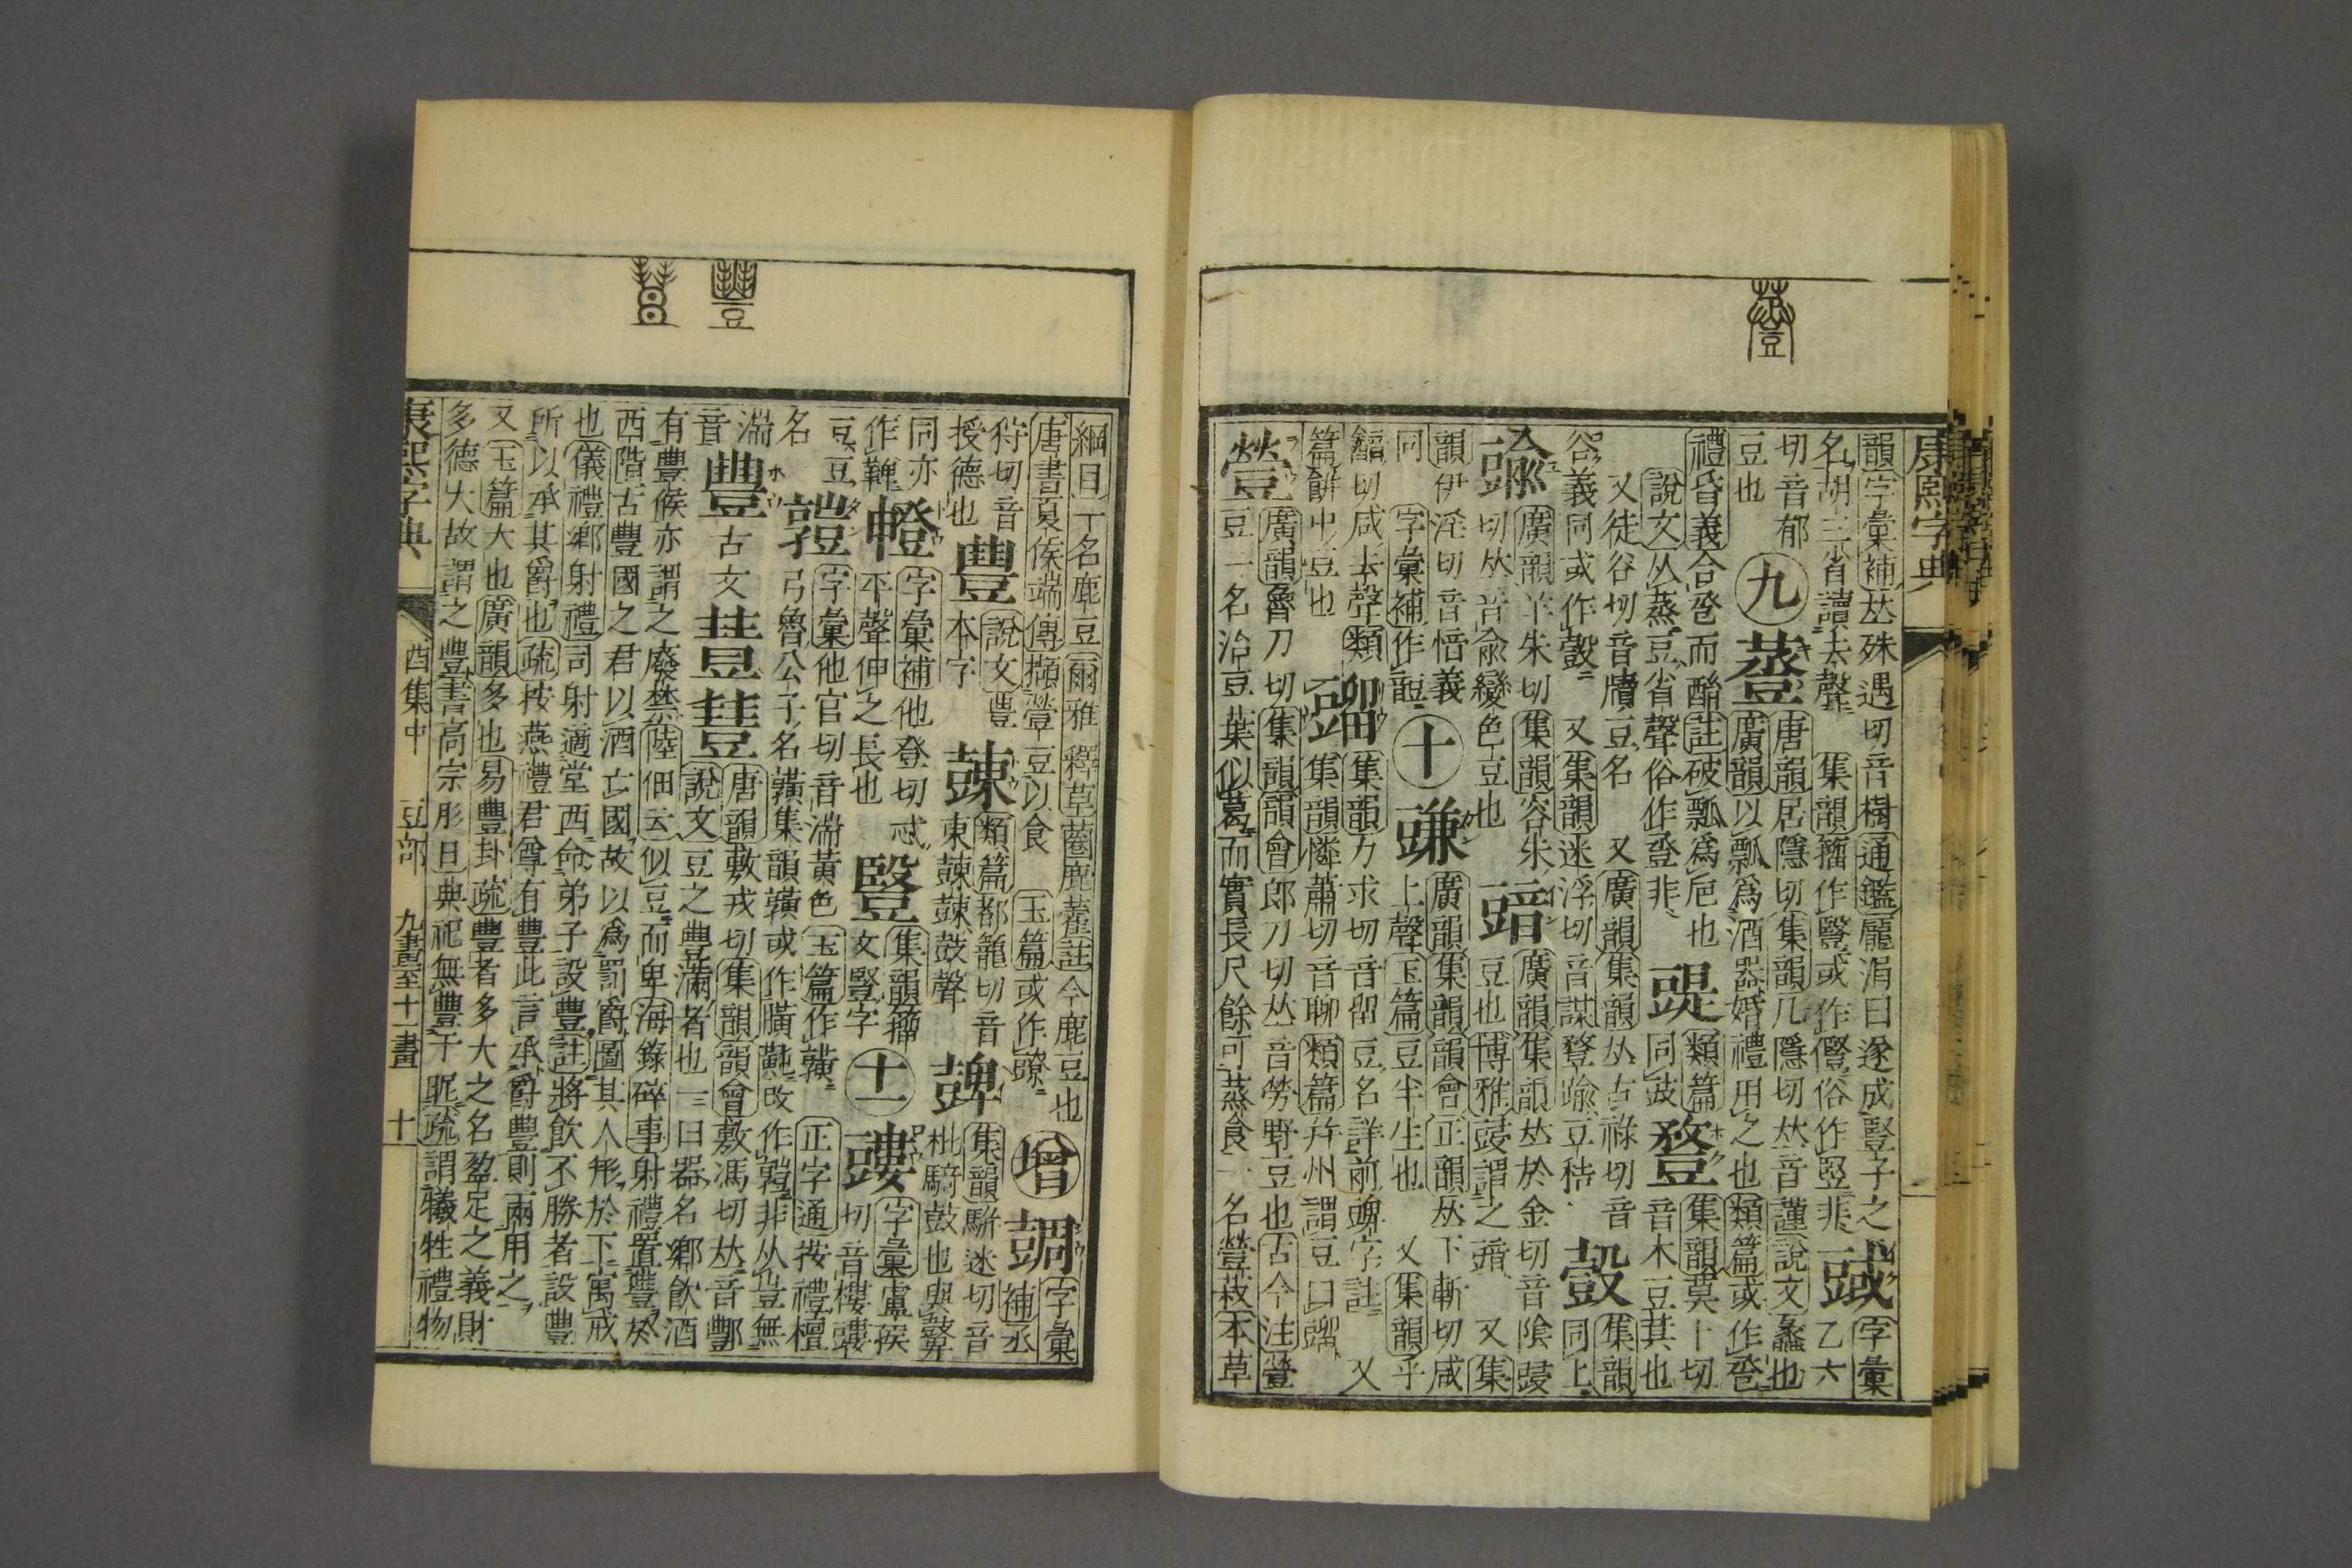 康熙字典
韻字彙補𠀤殊遇切音樹通鑑龐涓曰遂成豎子之 字彙
名胡三省讀去聲 集韻籀作豎或作 俗作竪非 乙六
切音郁 九 唐韻居隱切集韻几隱切𠀤音謹說文蠡也
豆也 廣韻以瓢爲酒器婚禮用之也類篇或作卺
禮昏義合卺而酳註破瓢爲卮也 類篇 集韻莫卜切
說文从蒸豆省聲俗作 非 同豉 音木豆其也
又徒谷切音牘豆名 又廣韻集韻𠀤古祿切音 集韻
谷義同或作 又集韻迷浮切音謀 豆秸 同上
廣韻羊朱切集韻容朱 廣韻集韻𠀤於金切音陰
切𠀤音俞變色豆也 豆也博雅 謂之 又集
韻伊淫切音愔義 廣韻集韻韻會正韻𠀤下斬切咸
同 字彙補作 十 上聲玉篇豆半生也 又集韻乎
切咸去聲類 集韻力求切音畱豆名詳前 字註 又
篇餅中豆也 集韻憐蕭切音聊 類篇幷州謂豆曰
廣韻魯刀切集韻韻會郎刀切𠀤音勞野豆也古今注䝁
䝁 豆一名治豆葉似葛而實長尺餘可蒸食一名䝁莢本草
綱目一名鹿豆爾雅釋草蔨鹿藿註今鹿豆也 字彙
唐書夏侯端傳擷䝁豆以食 玉篇或作 增 補丞
狩切音 說文豐 類篇都籠切音 集韻駢迷切音
授德也 豐 本字 東 鼓聲 枇騎鼓也與鼙
同亦 字彙補他登切忒 集韻籀 字彙盧侯
作鞞 平聲伸之長也 文豎字 十一 切音樓
豆豆 字彙他官切音湍黃色 玉篇作 正字通按禮檀
名 弓魯公子名 集韻 或作 改作 非从豈無
湍 豐 唐韻敷戎切集韻韻會敷馮切𠀤音酆
音 古文 說文豆之豐滿者也一曰器名鄉飲酒
有豐侯亦謂之廢禁陸佃云似豆而卑海錄碎事射禮置豐於
西階古豐國之君以酒亡國故以爲罰爵圖其人形於下寓戒
也儀禮鄉射禮司射適堂西命弟子設豐註將飮不勝者設豐
所以承其爵也疏按燕禮君尊有豐此言承爵豐則兩用之
又玉篇大也廣韻多也易豐卦疏豐者多大之名盈足之義財
多德大故謂之豐書高宗肜日典祀無豐于昵疏謂犧牲禮物
康熙字典 酉集中 豆部 九畫至十一畫 十